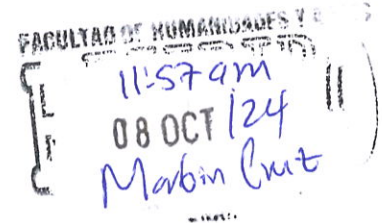 FACULTAD DE HUMANIDADES Y
11:57 am
08 OCT /24
Marbin Cruz